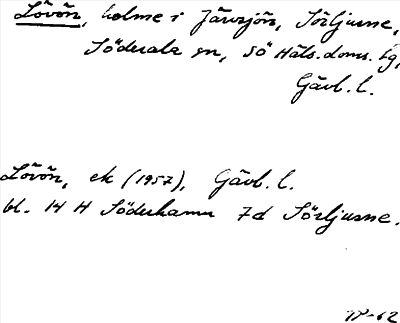 Lövön, holme i Järvsjön, Sörljusne,
Söderala sn, Sö Häls. doms. tg,
Gävl. l.
Lövön, ek (1957), Gävl. l.
bl. 14 H Söderhamn 7d Sörljusne.